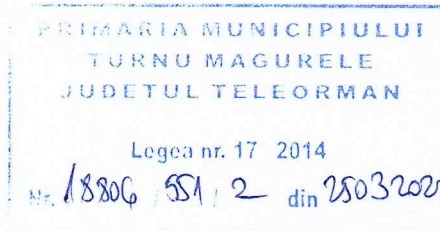 PRIMARIA MUNICIPIULUI
TURNU MAGURELE
JUDETUL TELEORMAN
Legea nr. 17 2014
Nr. 18806 / 551 / 2 din 2503202